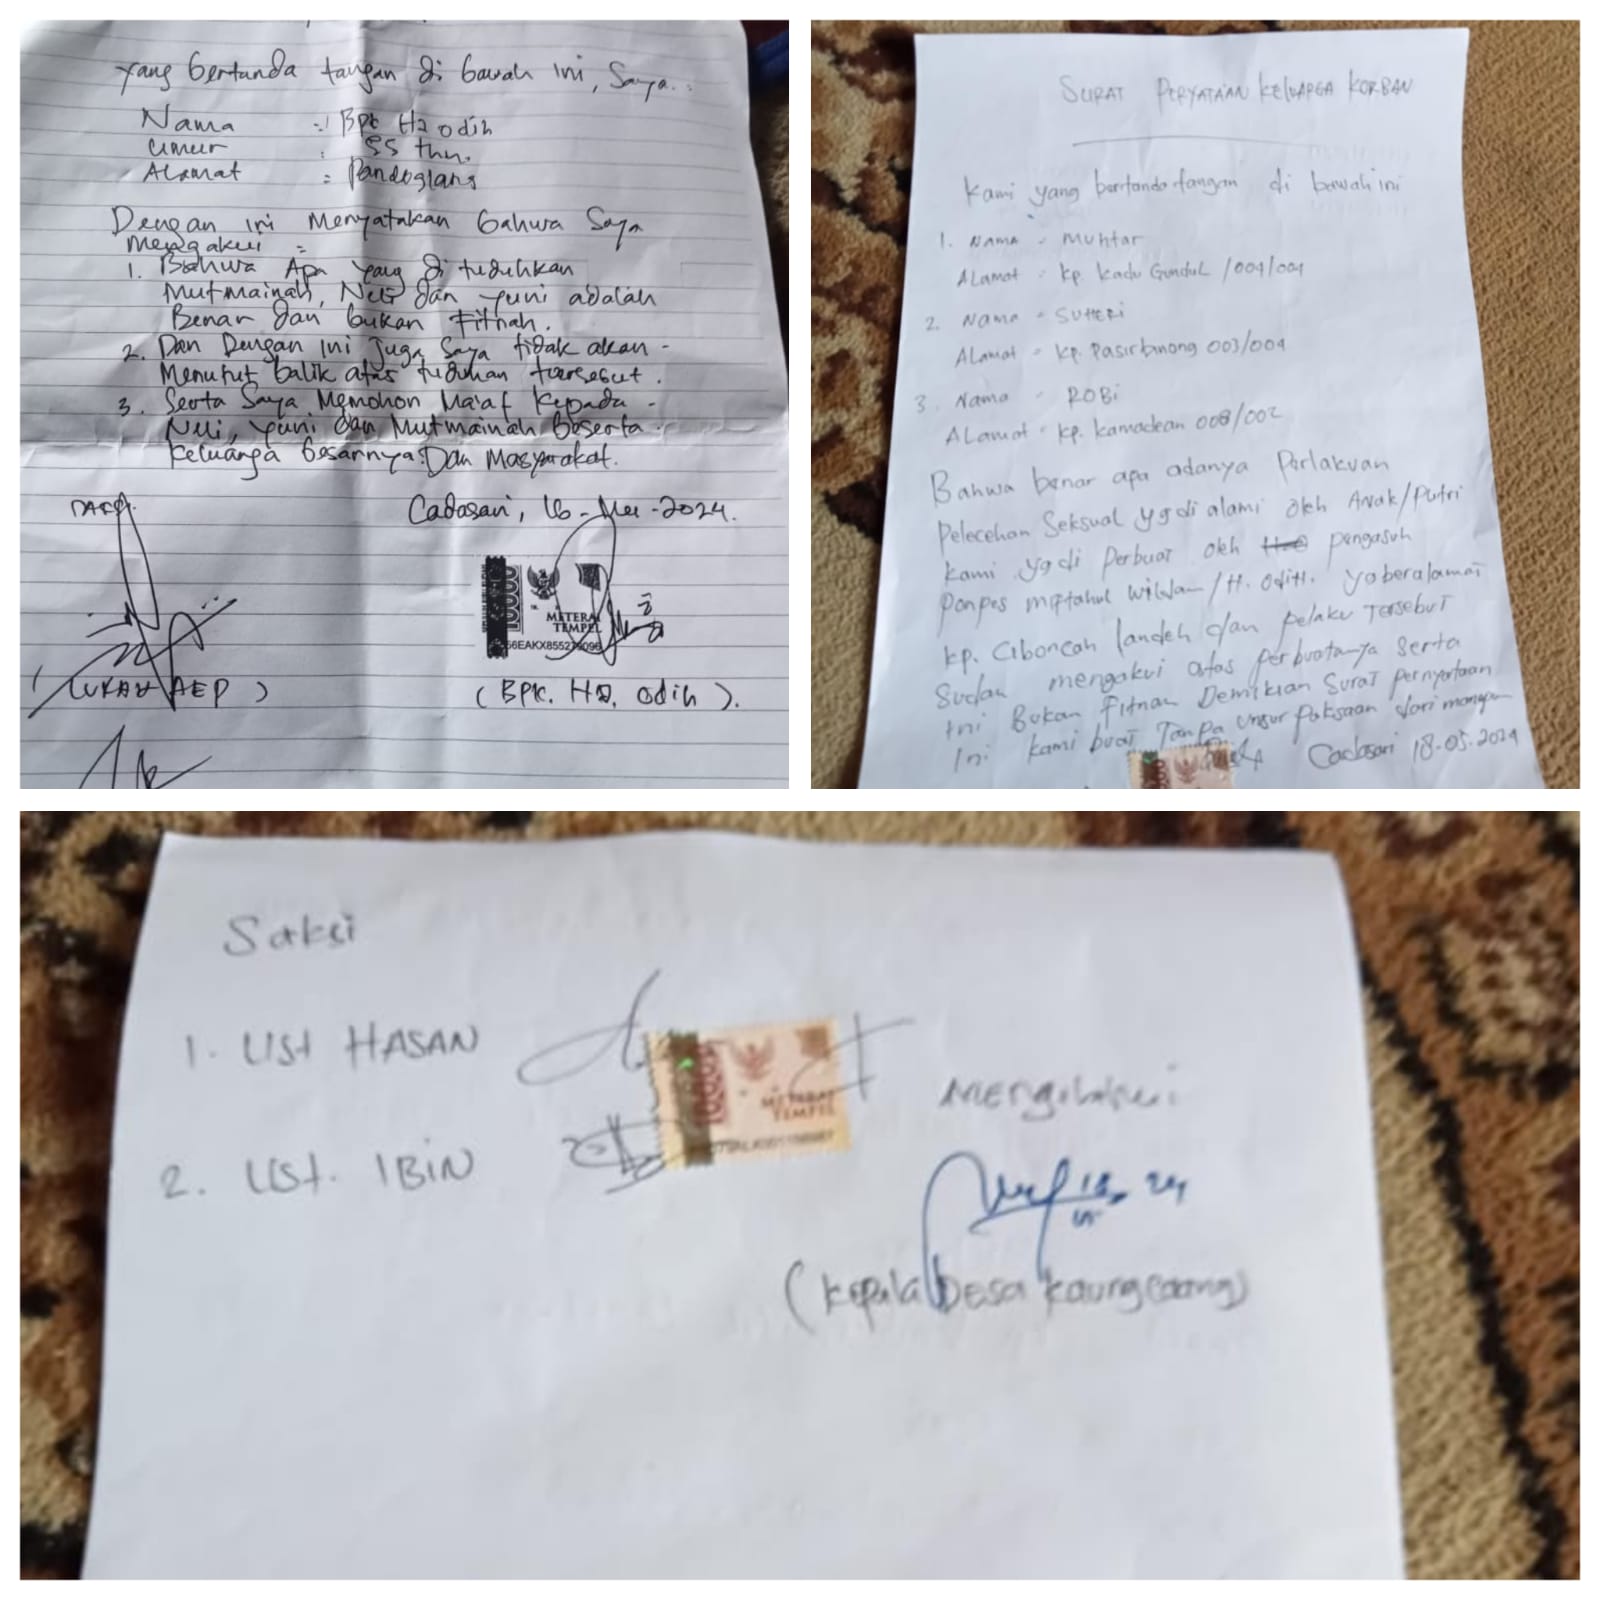 yang bertanda tangan di bawah ini, Saya :
Nama : Bpk Hz odih
Umur : 55 thn.
Alamat : Pandeglang
Dengan ini Menyatakan bahwa Saya
Mengakui =
1. Bahwa Apa yang di tuduhkan
Mutmainah, Neli dan yuni adalah
Benar dan bukan Fitnah.
2. Dan Dengan ini Juga Saya tidak akan -
Menutut balik atas tuduhan tersebut.
3. Serta Saya Memohon Ma'af Kepada -
Neli, yuni dan Mutmainah Beserta
Keluarga besarnya. Dan Masyarakat.
Cadasari, 16 - Mei - 2024.
METERAI
TEMPEL
(Bpk. Hz. odih).
SURAT PERYATAAN KELUARGA KORBAN
Kami yang bertanda tangan di bawah ini
1. Nama = Muhtar
Alamat = kp. kadu Gundul /004/004
2. Nama = SUHERi
Alamat = kp. Pasirbinong 003/004
3. Nama = ROBi
ALamat = kp. kamadean 008/002
Bahwa benar apa adanya Perlakuan
Pelecehan Seksual yg di alami oleh Anak/Putri
kami yg di Perbuat oleh pengasuh
Ponpes miptahul Wildan /H. Odih. yg beralamat
kp. Ciboncah landeh dan pelaku Tersebut
Sudah mengakui atas perbuatanya Serta
ini Bukan Fitnah Demikian Surat pernyataan
Ini kami buat Tanpa unsur Paksaan dari
Cadasari 18-05-2024
Saksi
1. Ust HASAN
METERAI
TEMPEL
Mengetahui
2. Ust. IBIN
(Kepala Desa